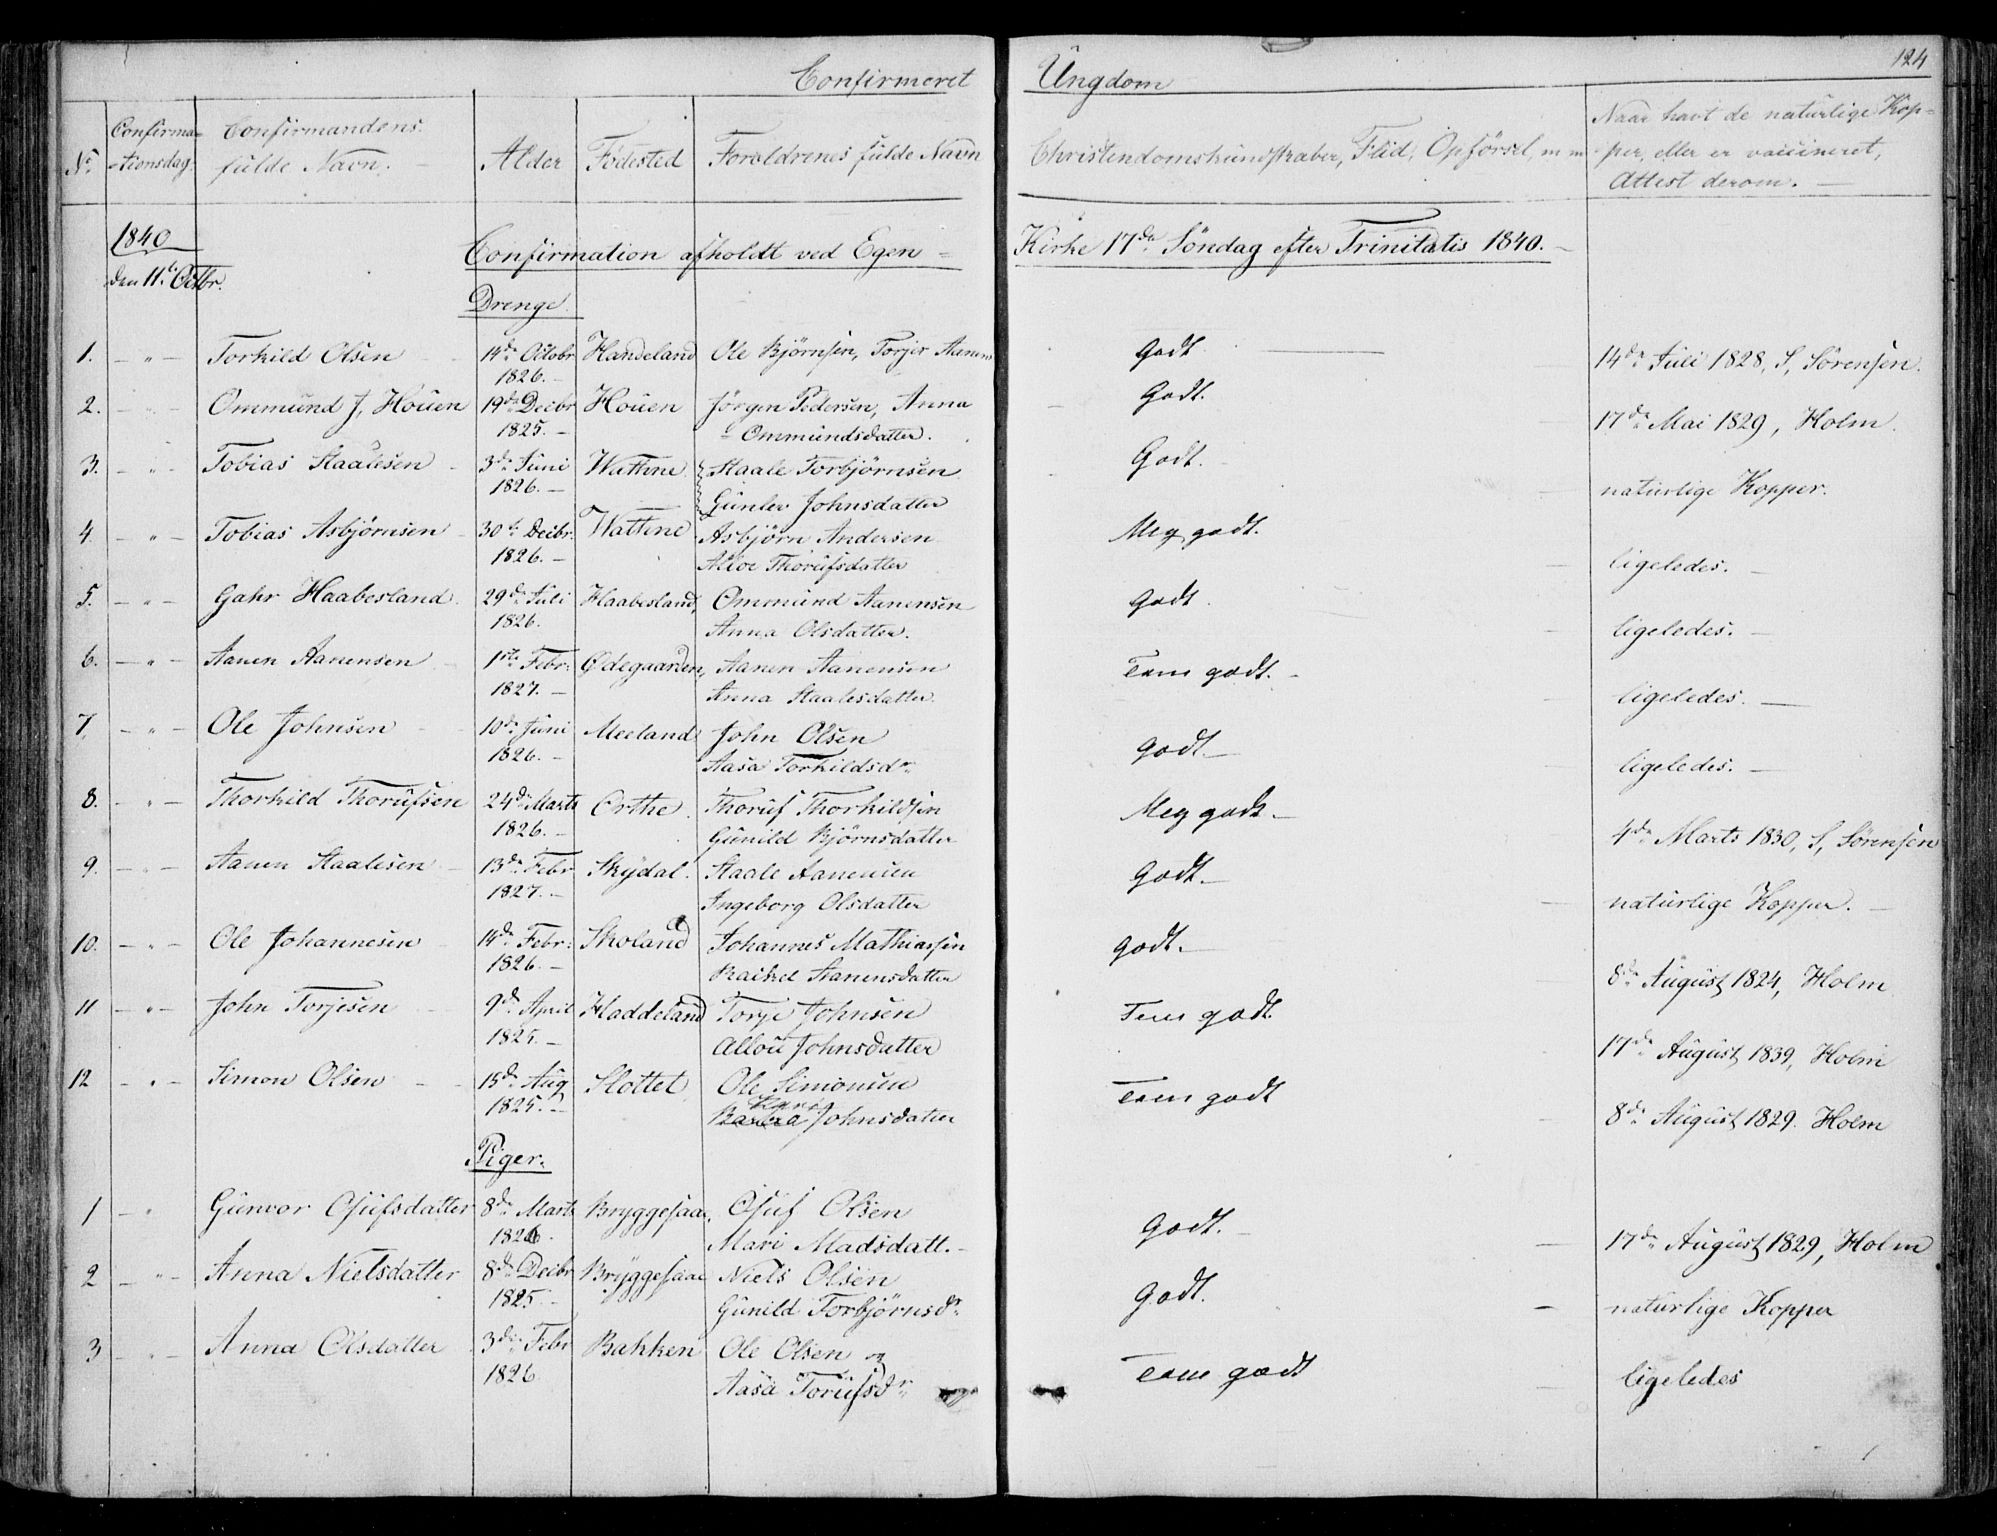 Confirmeret Ungdom
124
No
Confirma-
tionsdag
Confirmandens
fulde Navn.
Alder
Fødested
Forældrenes fulde Navn
Christendomskundskaber, Flid, Opförsel, m m
Naar havt de naturlige Kop-
per, eller er vaccineret,
Attest derom. —
1840
den 11te Octbr.
Confirmation afholdt ved Egen- Kirke 17de Söndag efter Trinitatis 1840. —
Drenge
1. — " — Torkild Olsen 14de Octobr Handeland Ole Björnsen, Torjer Aanens Godt — 14de Juli 1828, S, Sörensen.
1826. —
2. — " — Ommund J, Houen 19de Decbr Houen Jörgen Pedersen, Anna Godt. 17de Mai 1829, Holm.
1825. — Ommundsdatter.
3. — " — Tobias Staalesen 3de Juni Wathne Staale Torbjörnsen Godt. naturlige Kopper.
1826. — Gunler Johnsdatter
4. — " — Tobias Asbjörnsen 30te Decbr. Wathne Asbjörn Andersen Meg godt. ligeledes. —
1826. — Thorufsdatter
5. — " — Gahr Haabesland 29de Juli Haabesland, Ommund Aanensen Godt. ligeledes. —
1826. Anna Olsdatter.
6. — " — Aanen Aanensen 1ste Febr: Ødegaarden, Aanen Aanensen Tem godt. — ligeledes. —
1827. — Anna Staalesdatter
7. — " — Ole Johnsen 10de Juni Meeland John Olsen Godt. — ligeledes. —
1826. — Aasa Torkildsdr.
8. — " — Thorkild Thorufsen 24de Marts Orthe. Thoruf Thorkildsen Meg godt. — 4de Marts 1830, S, Sörensen
1826. — Gunild Björnsdatter
9. — " — Aanen Staalesen 13de Febr Skydal. Staale Aanensen Godt. — naturlige Kopper. —
1827. — Ingeborg Olsdatter
10. — " — Ole Johannesen 14de Febr: Skoland Johannes Mathiassen Godt. — 8de August 1824, Holm
1826. — Rachel Aanensdatter
11 — " — John Torjesen 9de April Haddeland Torje Johnsen Tem godt. 17de August 1839, Holm
1825. — Allou Johnsdatter
12 — " — Simon Olsen 15de Aug Slottet Ole Simonsen Tem godt 8de August 1829. Holm
1825. — Johnsdatter
Piger.
1 — " Gunvor Osufsdatter 8de Marts Bryggesaae, Osuf Olsen Godt. — 17de August 1829, Holm
1826. Mari Madsdatt. —
2 — " — Anna Nielsdatter 8de Decbr Bryggesaae Niels Olsen Godt. — naturlige Kopper
1825. — Gunild Torbjörnsdr.
3 — " — Anna Olsdatter 3die Febr Bakken Ole Olsen og Tem godt ligeledes
1826 Aasa Torufsdr.